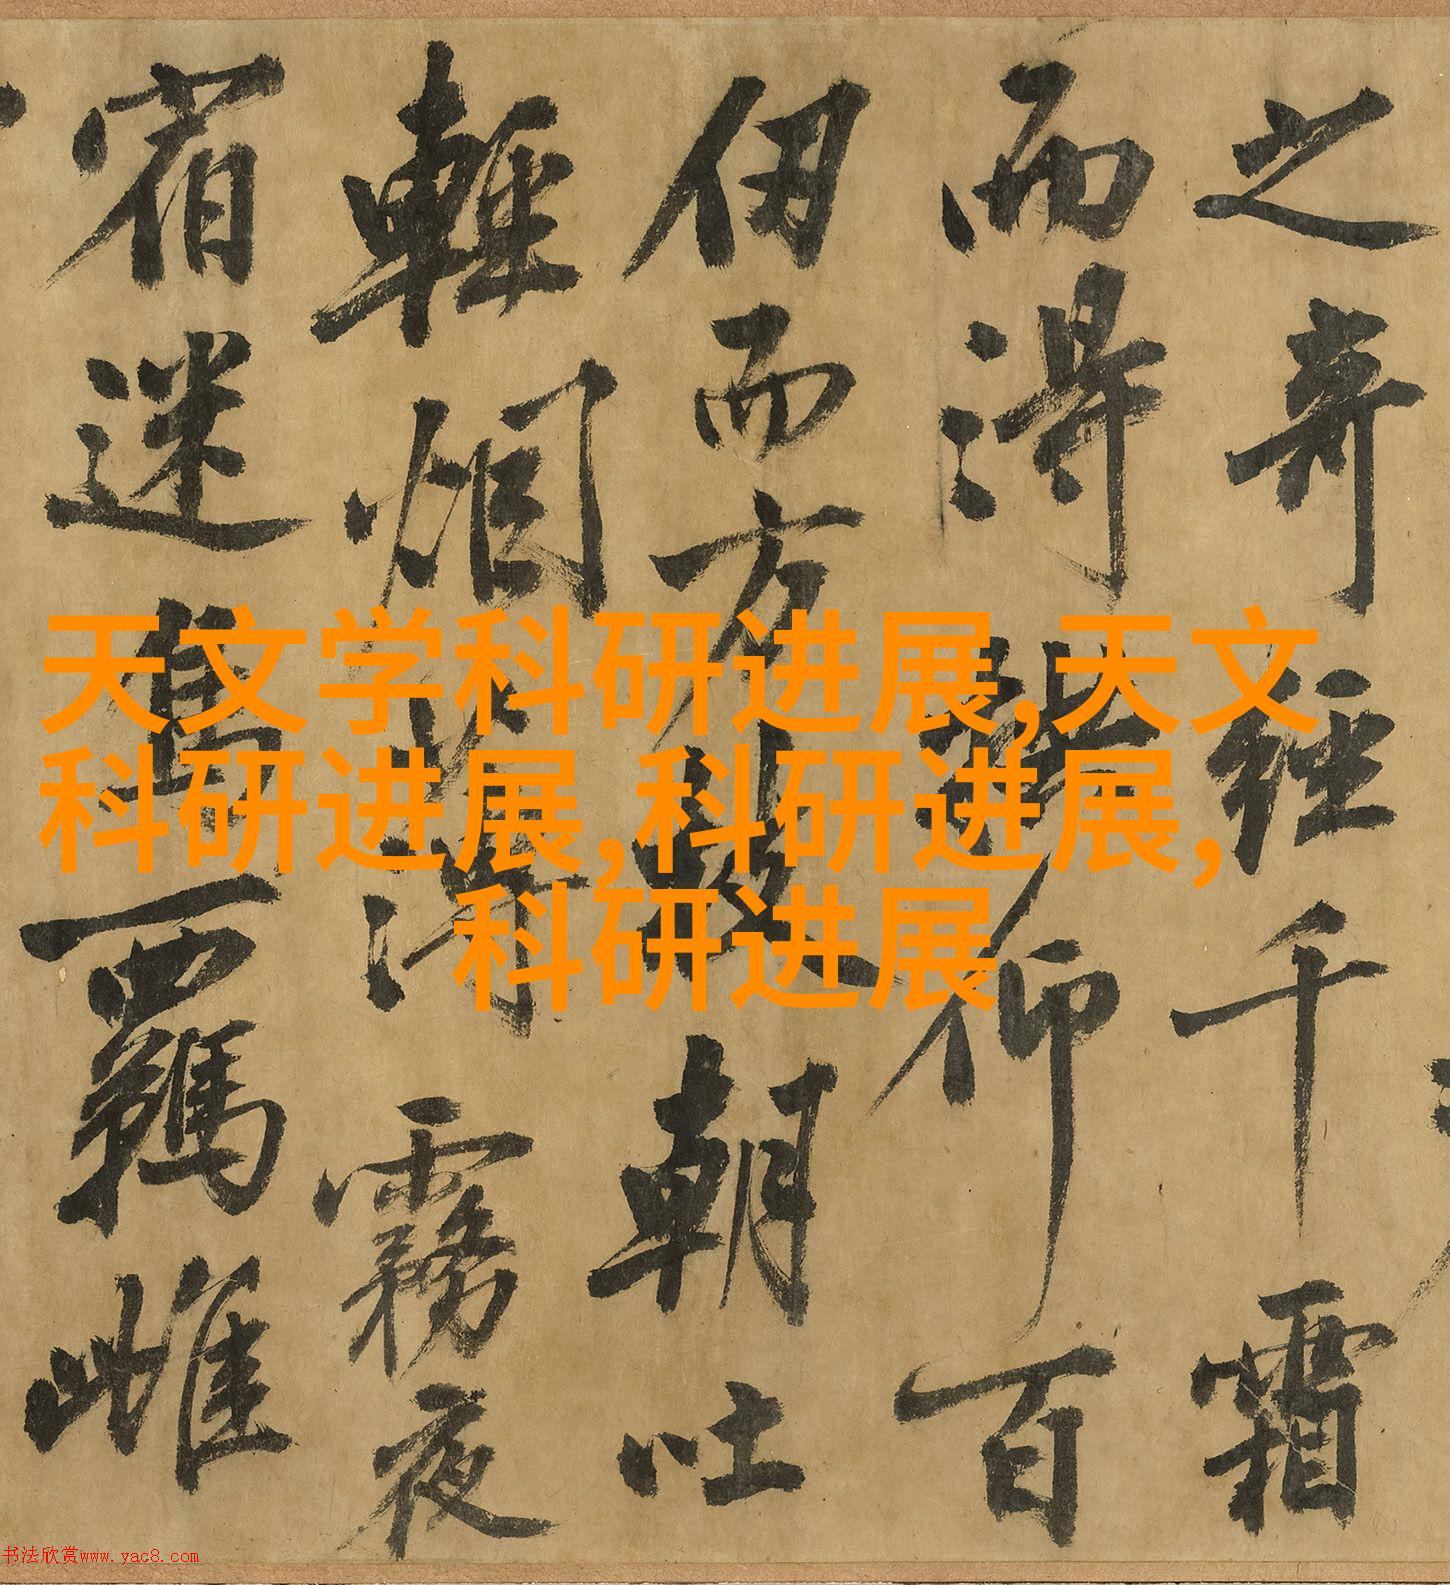 之奇經千霜
而得仰百
仞而方朝吐
輕烟薄霧夜
宿迷羈雌
天文学科研进展,天文
科研进展,科研进展,
科研进展
书法欣赏www.yac8.com